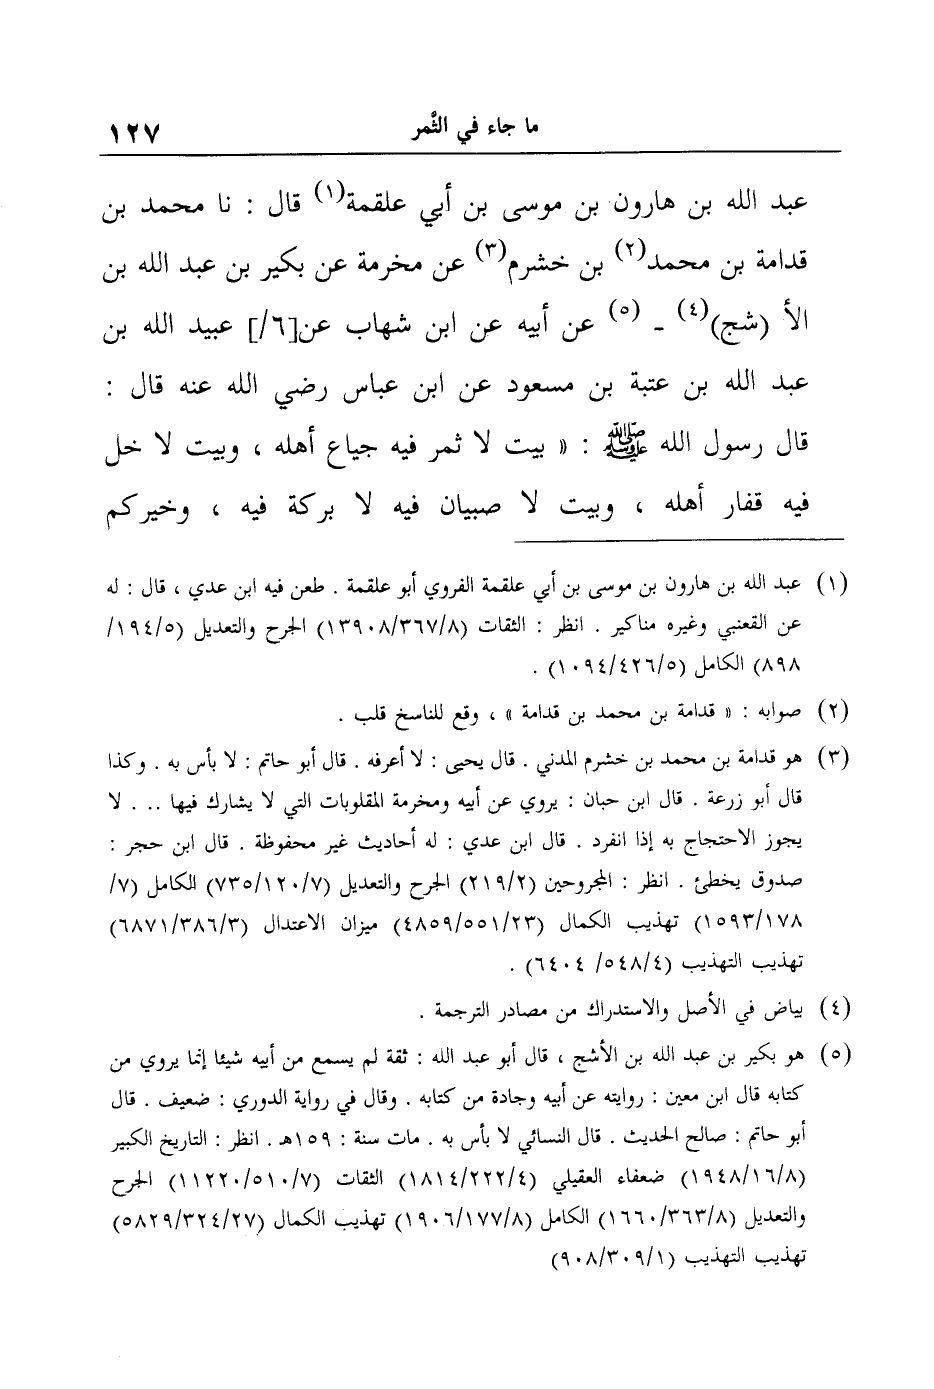 ما جاء في الثَّمر ١٢٧
عبد الله بن هارون بن موسى بن أبي علقمة(١) قال : نا محمد بن
قدامة بن محمد(٢) بن خشرم(٣) عن مخرمة عن بكير بن عبد الله بن
الأ (شج)(٤) ـ (٥) عن أبيه عن ابن شهاب عن[٦/] عبيد الله بن
عبد الله بن عتبة بن مسعود عن ابن عباس رضي الله عنه قال :
قال رسول الله ﷺ : « بيت لا ثمر فيه جياع أهله ، وبيت لا خل
فيه قفار أهله ، وبيت لا صبيان فيه لا بركة فيه ، وخيركم
(١) عبد الله بن هارون بن موسى بن أبي علقمة الفروي أبو علقمة . طعن فيه ابن عدي ، قال : له
عن القعنبي وغيره مناكير . انظر : الثقات (١٣٩٠٨/٣٦٧/٨) الجرح والتعديل (١٩٤/٥/
٨٩٨) الكامل (١٠٩٤/٤٢٦/٥) .
(٢) صوابه : « قدامة بن محمد بن قدامة » ، وقع للناسخ قلب .
(٣) هو قدامة بن محمد بن خشرم المدني . قال يحيى : لا أعرفه . قال أبو حاتم : لا بأس به . وكذا
قال أبو زرعة . قال ابن حبان : يروي عن أبيه ومخرمة المقلوبات التي لا يشارك فيها .. . لا
يجوز الاحتجاج به إذا انفرد . قال ابن عدي : له أحاديث غير محفوظة . قال ابن حجر :
صدوق يخطئ . انظر : المجروحين (٢١٩/٢) الجرح والتعديل (٧٣٥/١٢٠/٧) الكامل (٧/
١٥٩٣/١٧٨) تهذيب الكمال (٤٨٥٩/٥٥١/٢٣) ميزان الاعتدال (٦٨٧١/٣٨٦/٣)
تهذيب التهذيب (٥٤٨/٤/ ٦٤٠٤) .
(٤) بياض في الأصل والاستدراك من مصادر الترجمة .
(٥) هو بكير بن عبد الله بن الأشج ، قال أبو عبد الله : ثقة لم يسمع من أبيه شيئا إنما يروي من
كتابه قال ابن معين : روايته عن أبيه وجادة من كتابه . وقال في رواية الدوري : ضعيف . قال
أبو حاتم : صالح الحديث . قال النسائي لا بأس به . مات سنة : ١٥٩هـ . انظر : التاريخ الكبير
(١٩٤٨/١٦/٨) ضعفاء العقيلي (١٨١٤/٢٢٢/٤) الثقات (١١٢٢٠/٥١٠/٧) الجرح
والتعديل (١٦٦٠/٣٦٣/٨) الكامل (١٩٠٦/١٧٧/٨) تهذيب الكمال (٥٨٢٩/٣٢٤/٢٧)
تهذيب التهذيب (٩٠٨/٣٠٩/١)